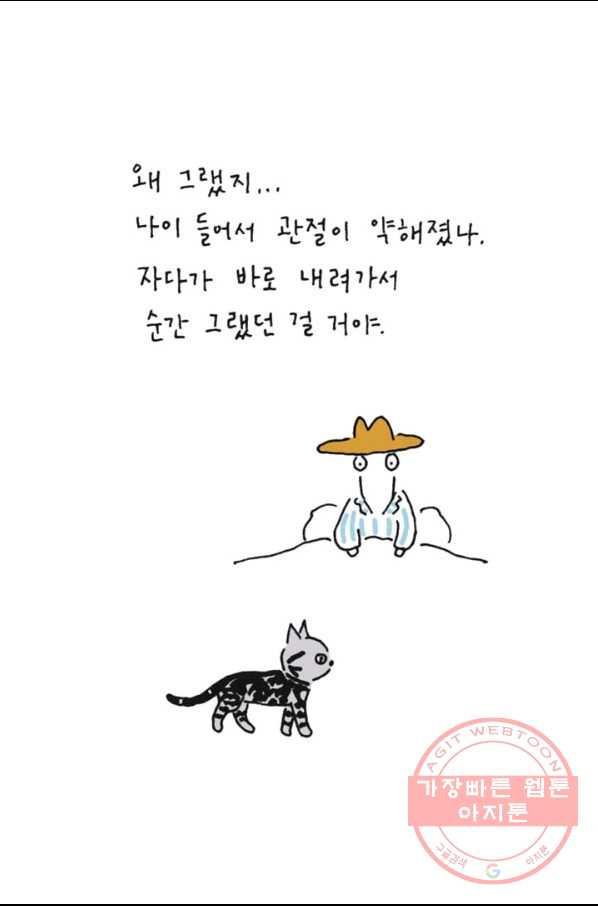 왜 그랬지...
나이 들어서 관절이 약해졌나.
자다가 바로 내려가서
순간 그랬던 걸 거야.
AGIT WEBTOON
가장빠른 웹툰
아지툰
구글검색 G 아지툰